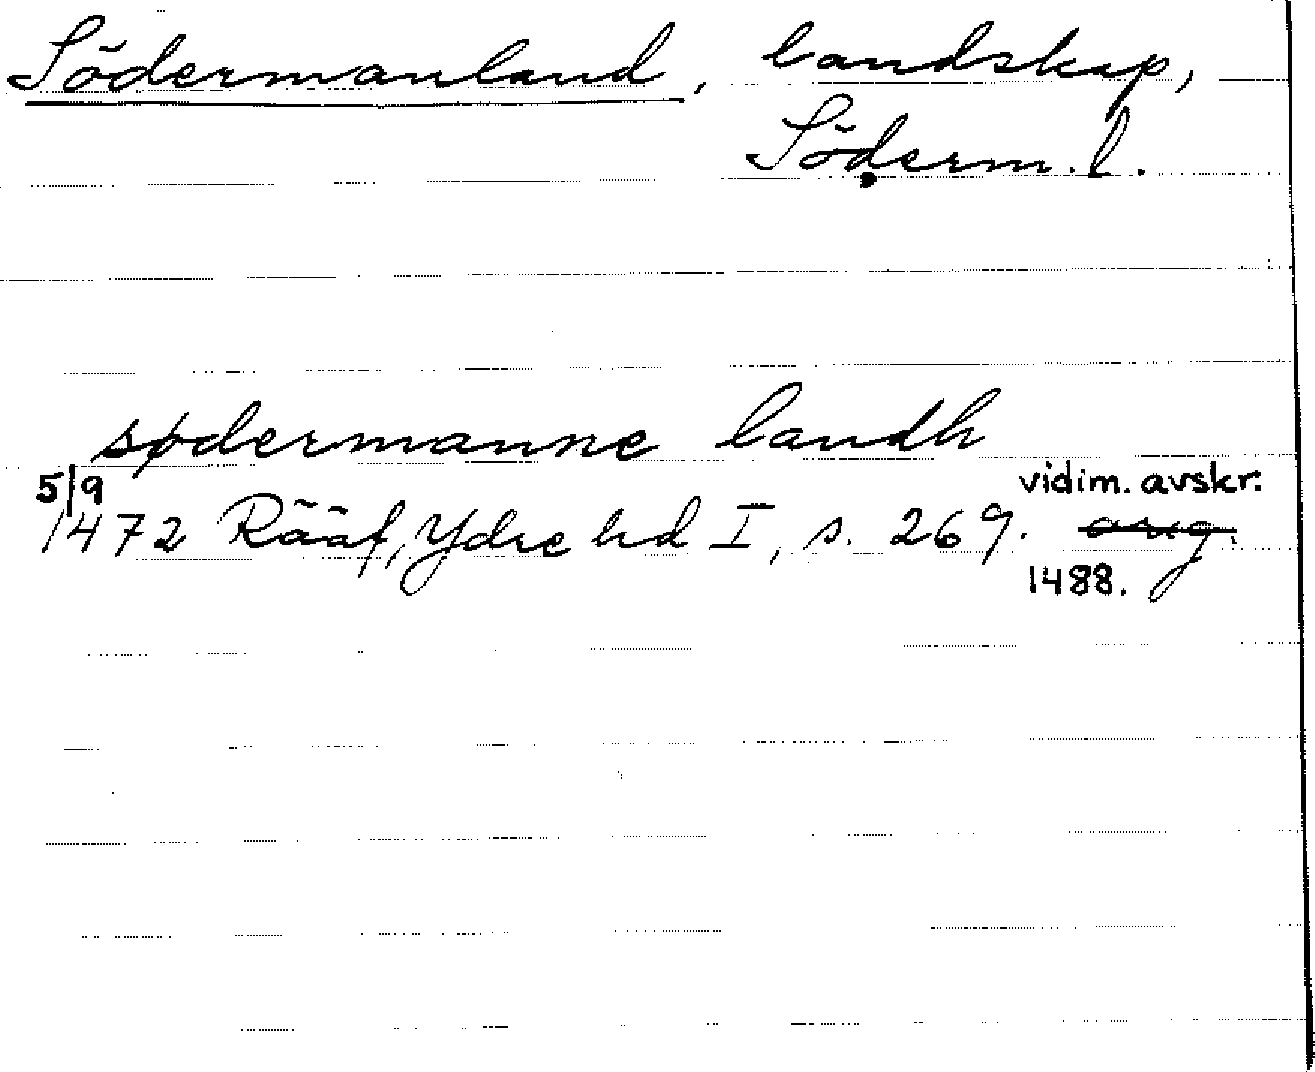 Södermanland, landskap,
Söderm. l.
sødermanne landh
5/9 vidim. avskr:
1472 Rääf, Ydre hd I, s. 269. orig.
1488.